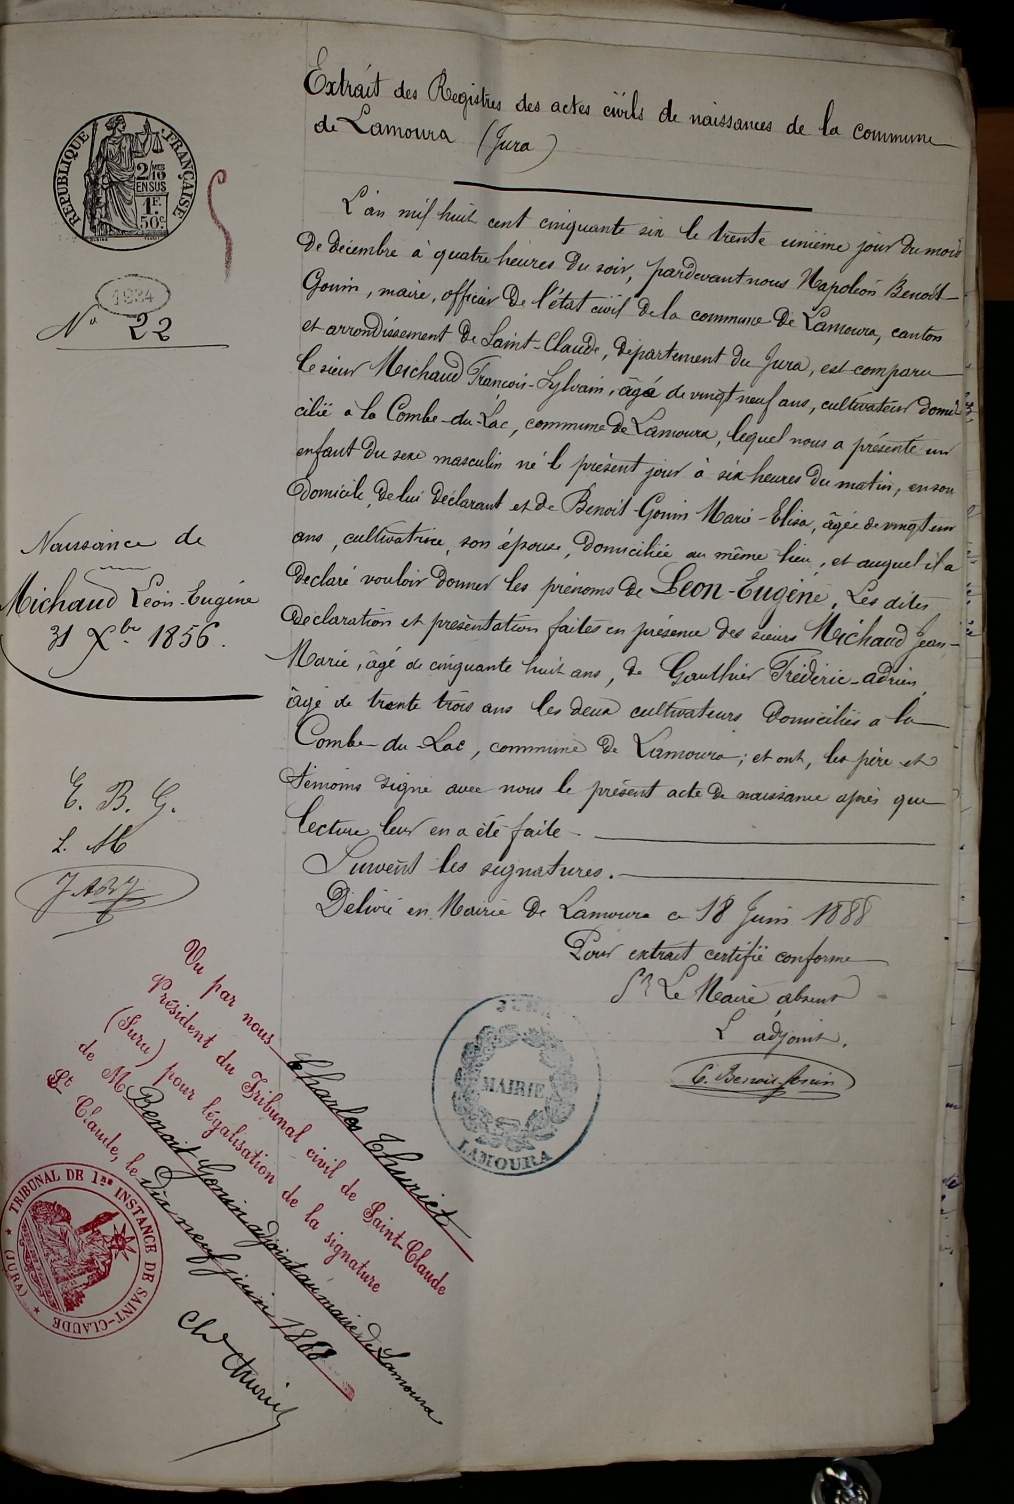 Extrait des Registres des actes civils de naissances de la commune
de Lamoura (Jura)
REPUBLIQUE FRANÇAISE
2/10 MES
EN SUS
1 F.
50 c.
1934
N° 22
L'an mil huit cent cinquante six le trente unième jour du mois
de décembre à quatre heures du soir, pardevant nous Napoléon Benoit-
Gonin, maire, officier de l'état civil de la commune de Lamoura, canton
et arrondissement de Saint-Claude, département du Jura, est comparu
le sieur Michaud François-Sylvain, âgé de vingt neuf ans, cultivateur domi-
cilié à la Combe-du-Lac, commune de Lamoura, lequel nous a présenté un
enfant du sexe masculin né le présent jour à six heures du matin, en son
domicile, de lui déclarant et de Benoit-Gonin Marie-Elisa, âgée de vingt un
ans, cultivatrice, son épouse, domiciliée au même lieu, et auquel il a
déclaré vouloir donner les prénoms de Léon-Eugène. Les dites
déclaration et présentation faites en présence des sieurs Michaud Jean-
Marie, âgé de cinquante huit ans, de Gauthier Frédéric-Adrien,
âgé de trente trois ans les deux cultivateurs domiciliés a la
Combe-du-Lac, commune de Lamoura; et ont, les père et
témoins signé avec nous le présent acte de naissance après que
lecture leur en a été faite.
Suivent les signatures.
Délivré en Mairie de Lamoura ce 18 Juin 1888
Pour extrait certifié conforme
Pr Le Maire absent
L'adjoint.
C. Benoit-Gonin
Naissance de
Michaud Léon-Eugène
31 Xbre 1856.
E. B. G.
L. M
JURA
MAIRIE
LAMOURA
Vu par nous Charles Thuriet
Président du Tribunal civil de Saint-Claude
(Jura) pour légalisation de la signature
de M Benoit Gonin adjoint au maire de Lamoura
St Claude, le dix neuf juin 1888
Ch Thuriet
TRIBUNAL DE 1RE INSTANCE DE SAINT-CLAUDE
(JURA)